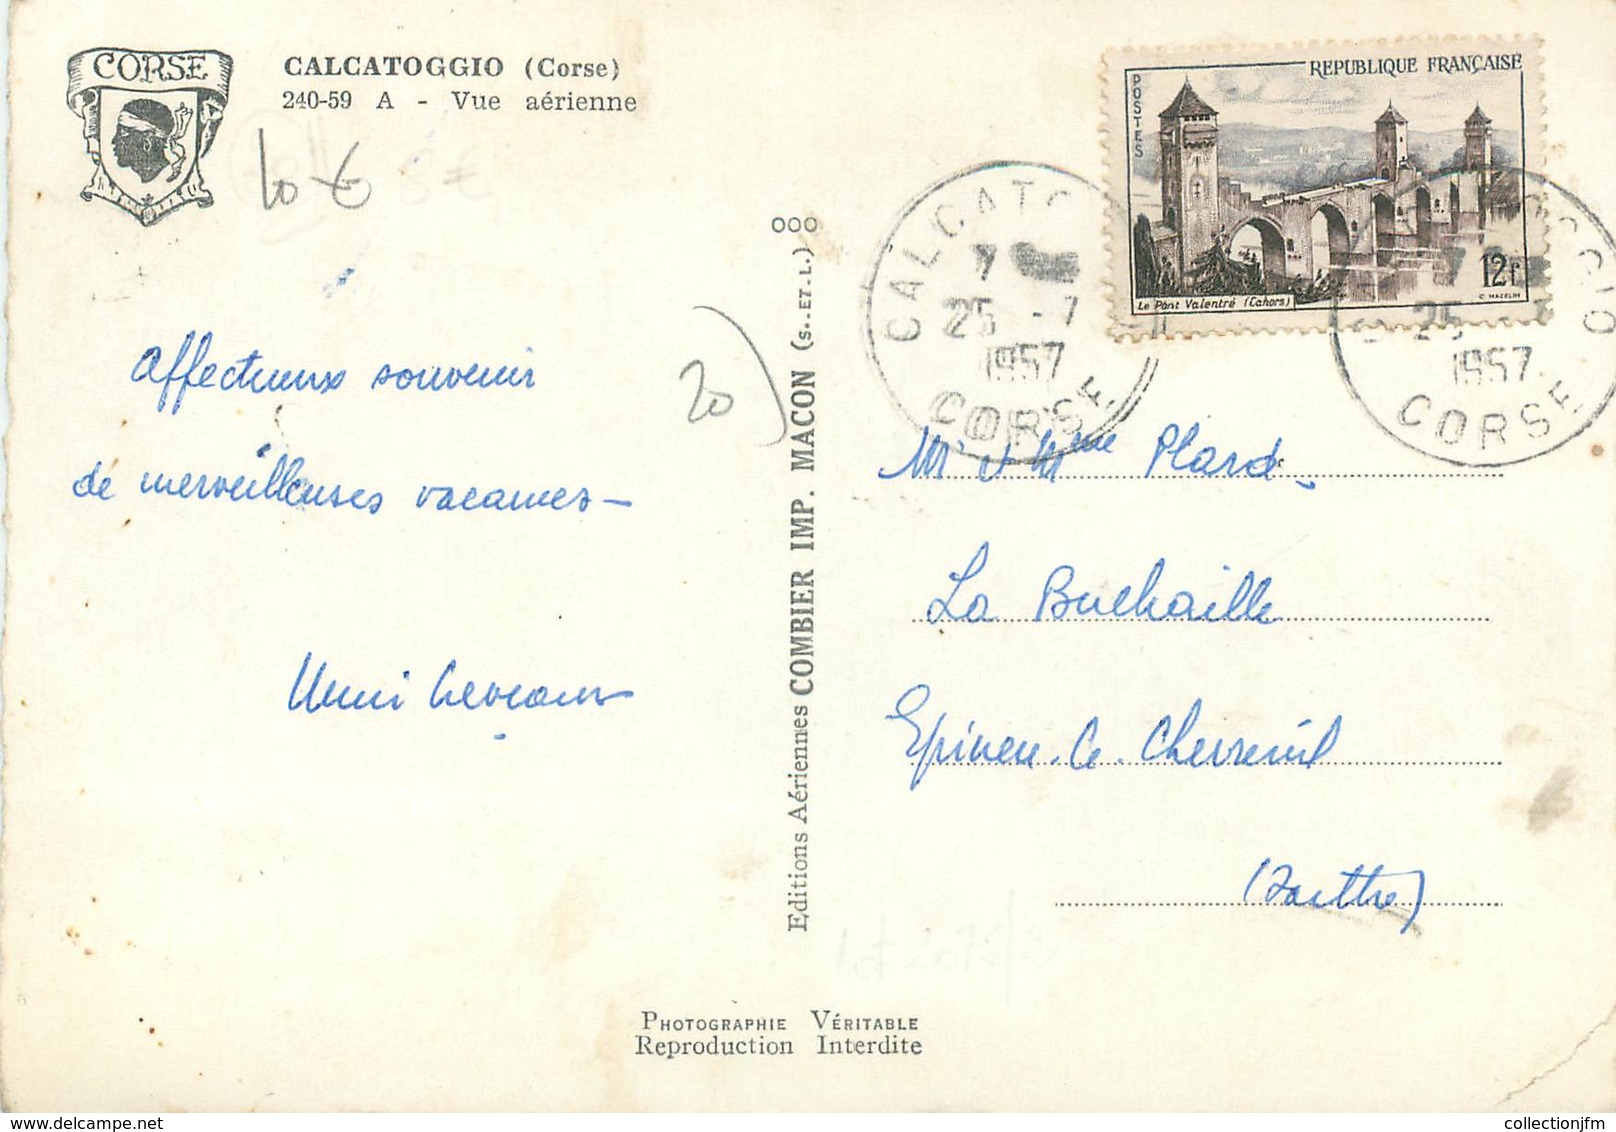 CORSE
CALCATOGGIO (Corse)
240-59 A - Vue aérienne
10 €
8 €
20
Affectueux souvenir
de merveilleuses vacances -
Editions Aériennes COMBIER IMP. MACON (S.. ET. L.)
OOO
REPUBLIQUE FRANÇAISE
POSTES
12f
Le Pont Valentré (Cahors)
C. MAZELIN
CALCATO
7
25 -7
1957
CORSE
OGGIO
7
25
1957
CORSE
Mr et Mme Plard
La Buchaille
Epineu-le-Chevreuil
(Sarthe)
PHOTOGRAPHIE VÉRITABLE
Reproduction Interdite
collectionjfm